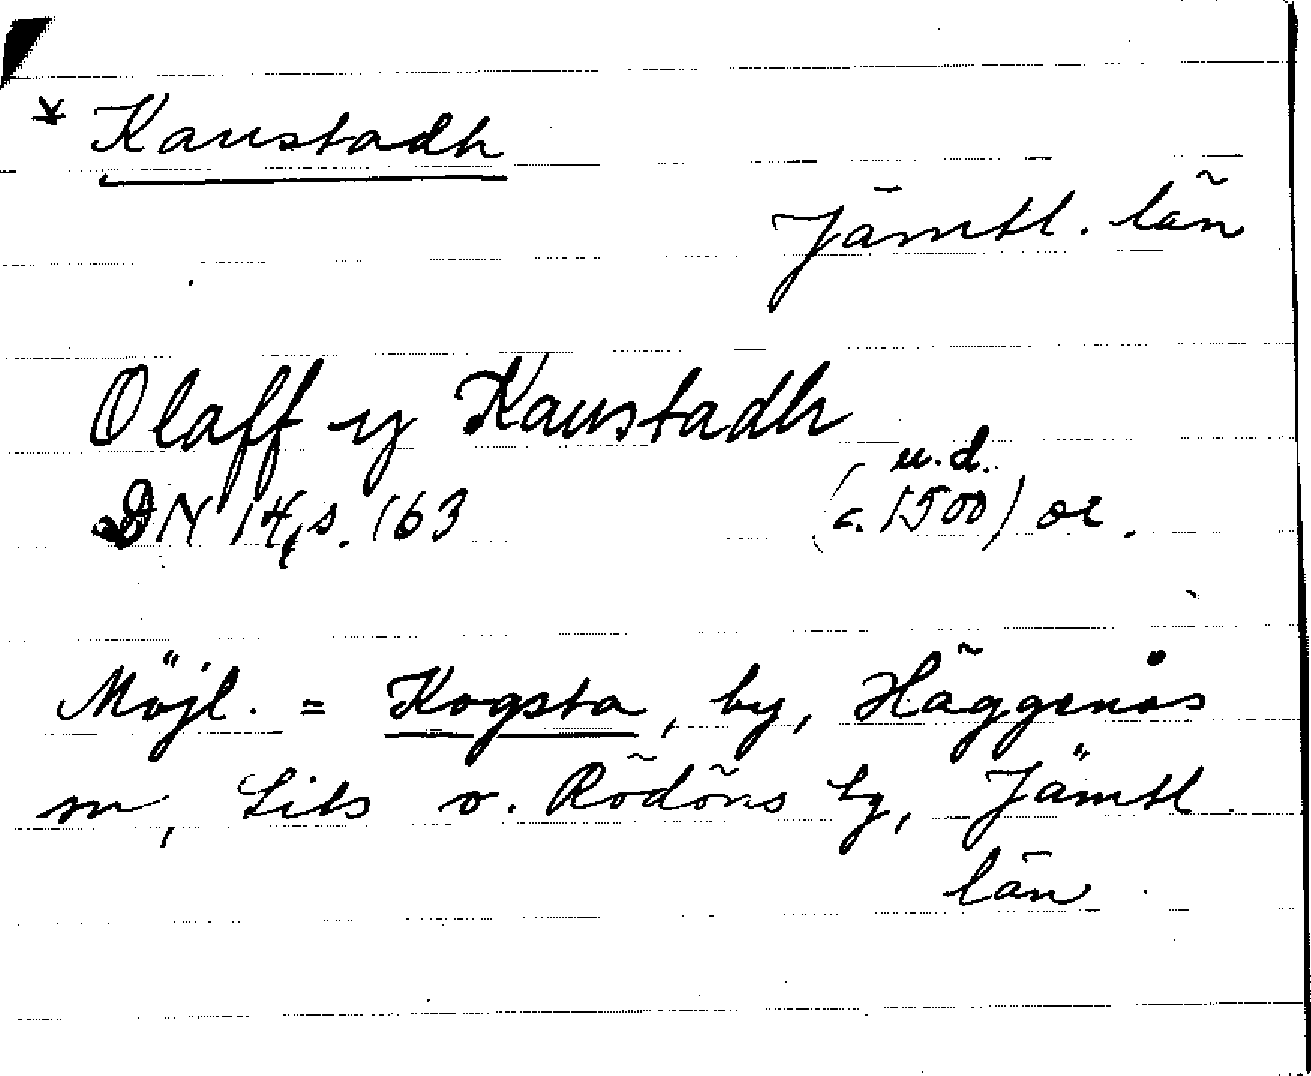 * Kaustadh
Jämtl. län
Olaff y Kaustadh
u.d.
DN 14, s. 163 (c. 1500) or.
Möjl. = Kogsta, by, Häggenås
sn, Lits o. Rödöns tg, Jämtl
län